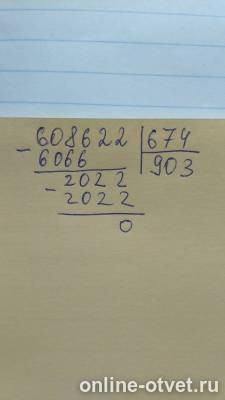 608622 | 674
- 6066 903
2022
- 2022
0
online-otvet.ru